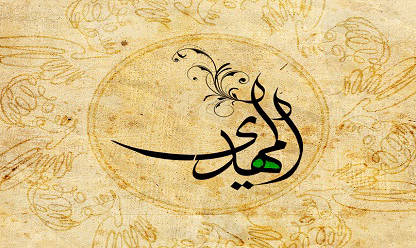 المهدی